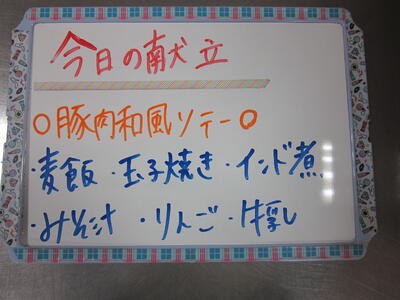 今日の献立
○豚肉和風ソテー○
・麦飯 ・玉子焼き ・インド煮
・みそ汁 ・りんご ・牛乳